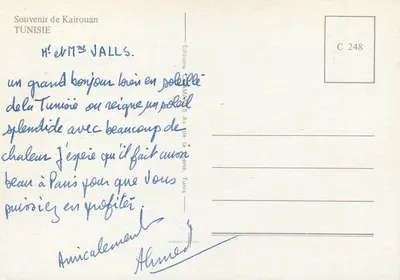 Souvenir de Kairouan
TUNISIE
C 248
Mr et Mme VALLS.
un grand bonjour bien en soleillé
de la Tunisie ou reigne un soleil
splendide avec beaucoup de
chaleur J'espère qu'il fait aussi
beau à Paris pour que Vous
puissiez en profiter.
Amicalement
Ahmed